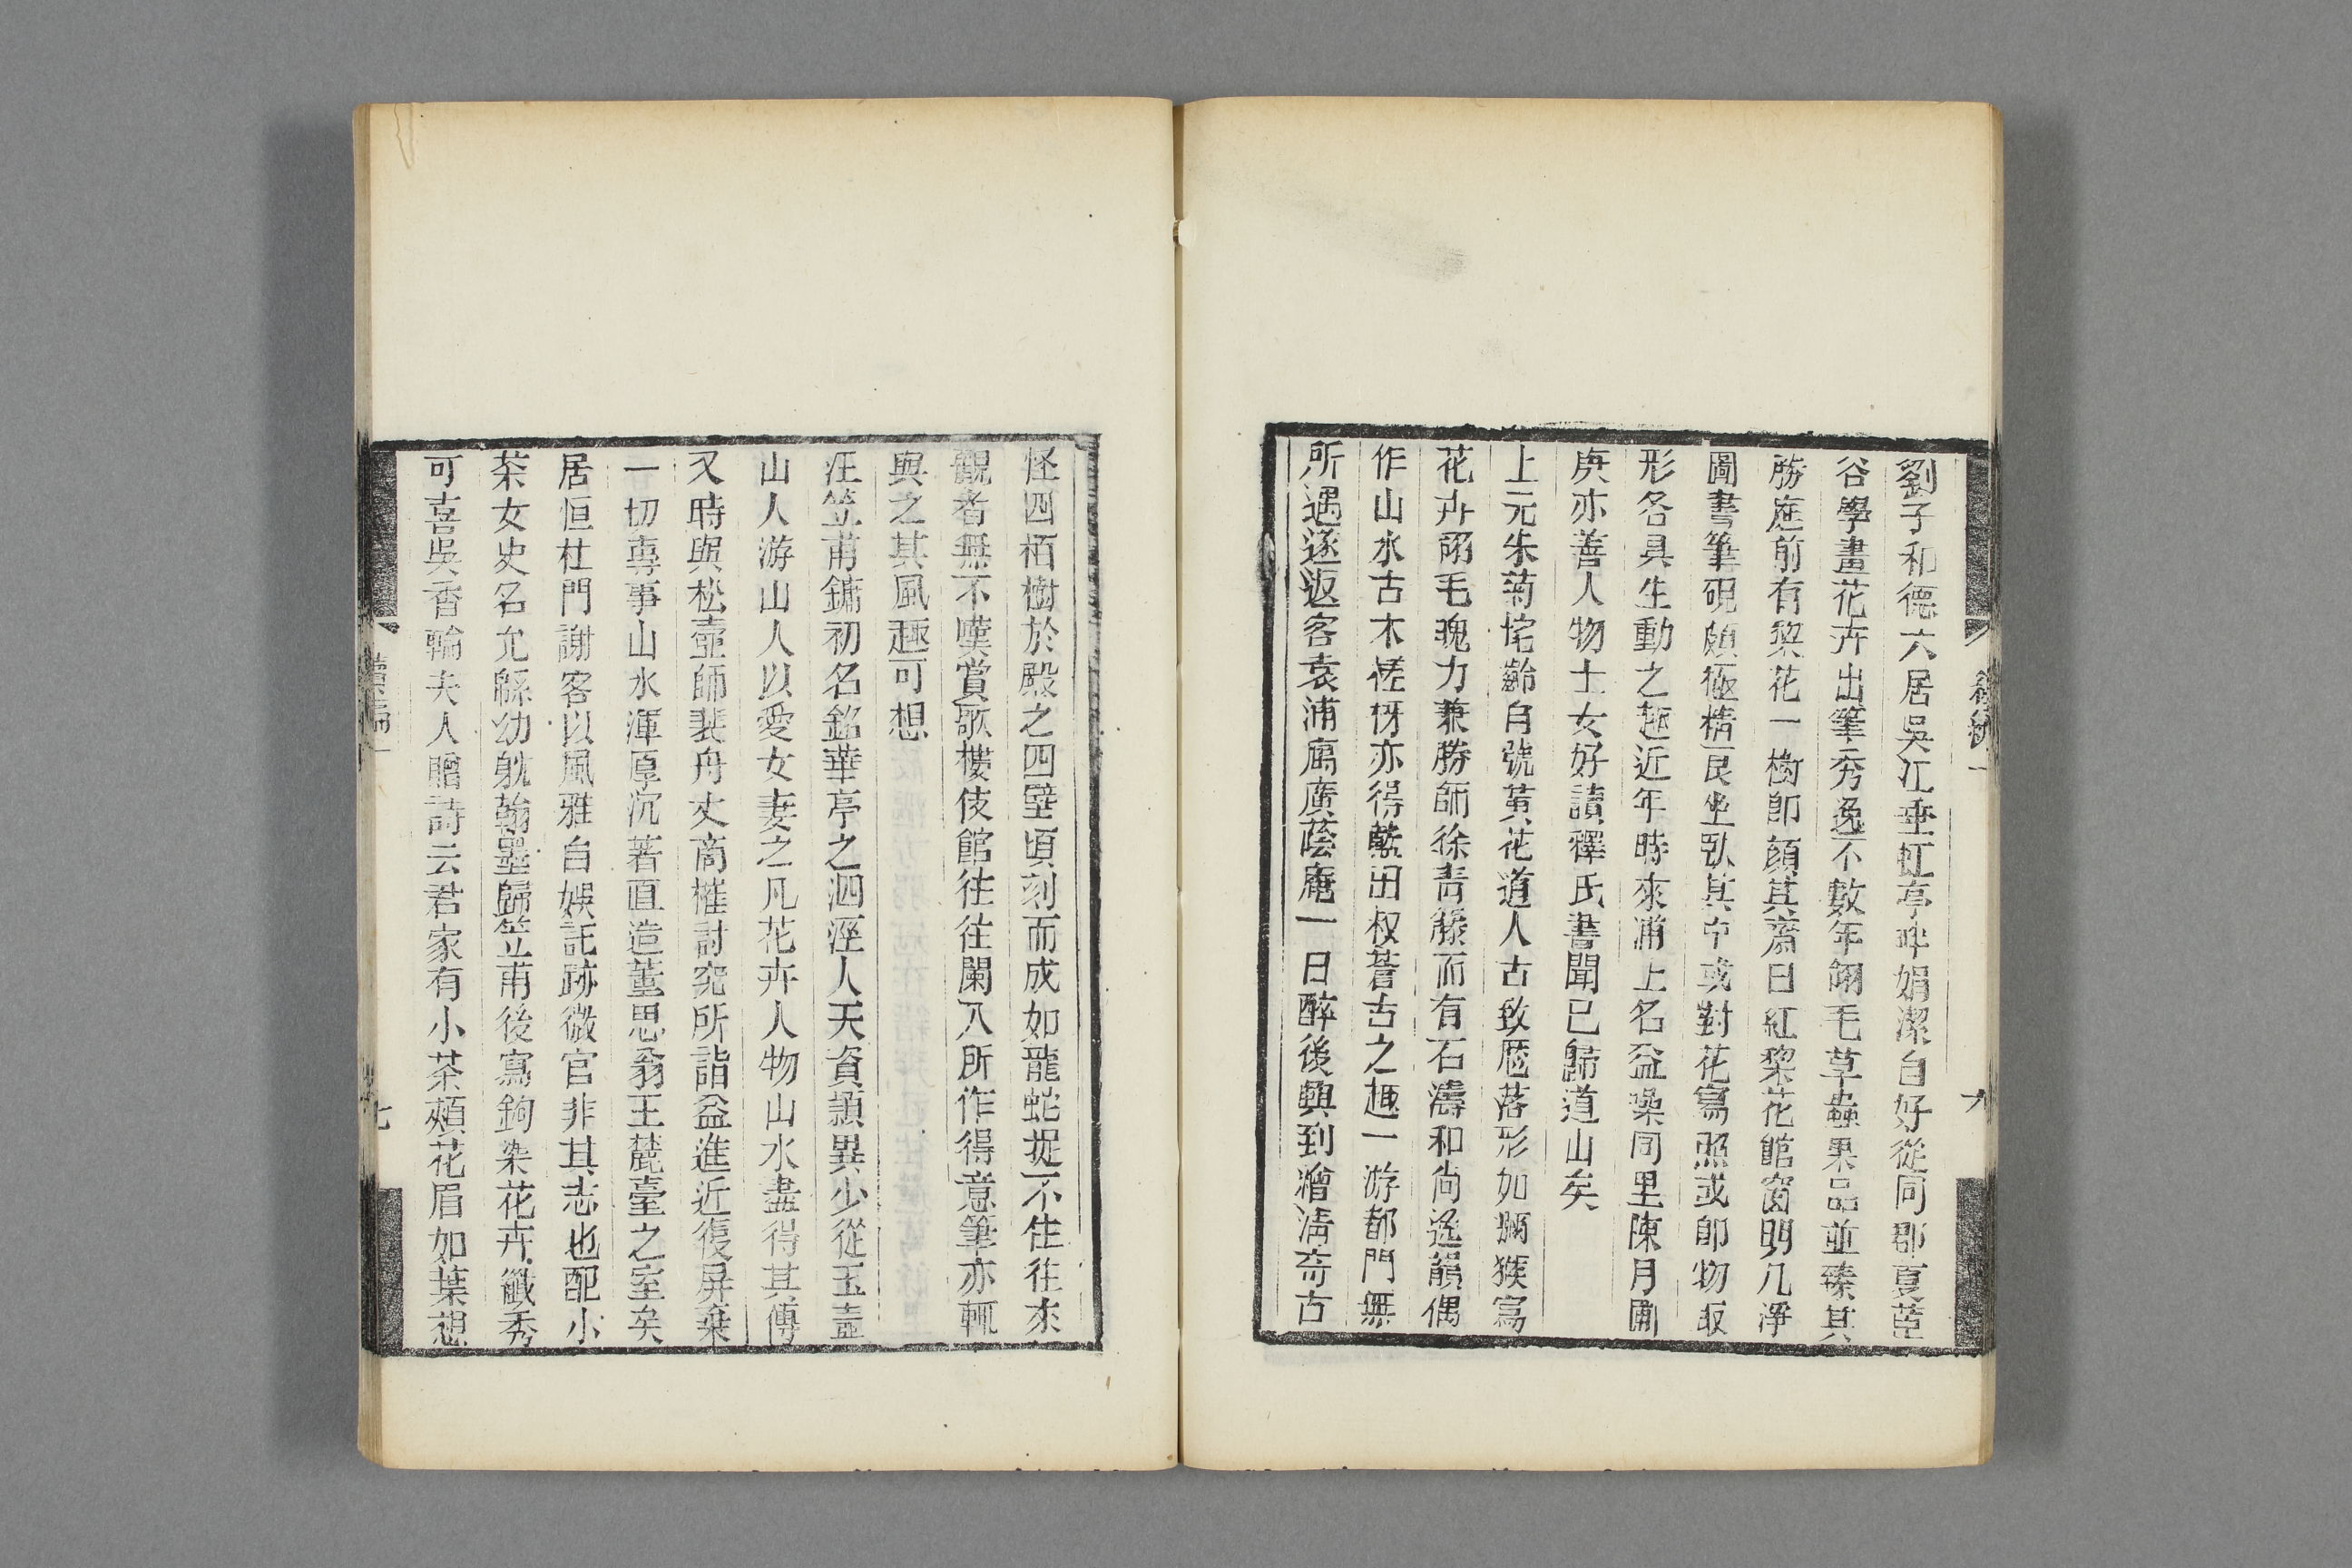 劉子和德六居吳江垂虹亭畔娟潔自好從同郡夏茞
谷學畫花卉出筆秀逸不數年翎毛草蟲果品並臻其
勝庭前有棃花一樹卽顏其齋曰紅棃花館窗明几淨
圖書筆硯頗極精良坐臥其中或對花寫照或卽物取
形各具生動之趣近年時來浦上名益噪同里陳月圃
庚亦善人物士女好讀釋氏書聞已歸道山矣
上元朱菊垞齡自號黃花道人古致歷落形如獮猴寫
花卉翎毛魄力兼勝師徐靑藤而有石濤和尙逸韻偶
作山水古木槎枒亦得藍田叔蒼古之趣一游都門無
所遇遂返客袁浦寓廣蔭庵一日醉後興到潑淸奇古
怪四栢樹於殿之四壁頃刻而成如龍蛇捉不住往來
觀者無不嘆賞歌樓伎館往往闌入所作得意筆亦輒
與之其風趣可想
汪笠甫鏞初名銘華亭之泗涇人天資頴異少從玉壺
山人游山人以愛女妻之凡花卉人物山水盡得其傳
又時與松壺師裴舟丈商榷討究所詣益進近復屏棄
一切專事山水渾厚沉著直造董思翁王麓臺之室矣
居恒杜門謝客以風雅自娛託跡微官非其志也配小
茶女史名允緜幼躭翰墨歸笠甫後寫鉤染花卉纖秀
可喜吳香輪夫人贈詩云君家有小茶頰花眉如葉想
續編一
七
續編一
九